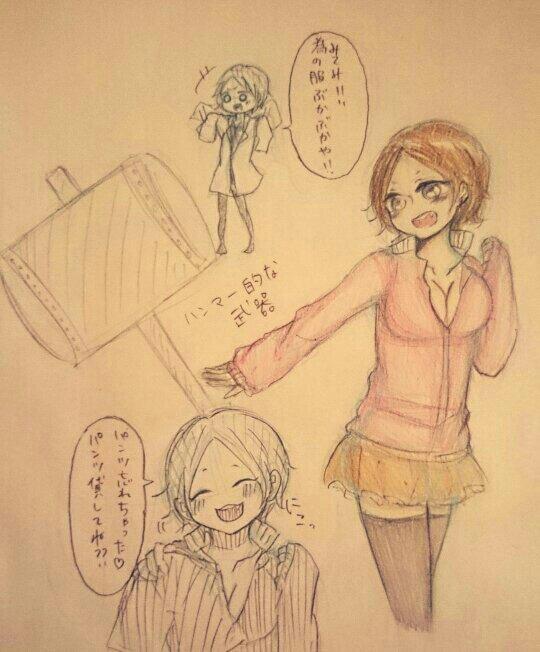 みてみ!!
為の服ぶかぶかや!!
ハンマー的な
武器
パンツ忘れちゃった♡
パンツ貸してね??
にこっ